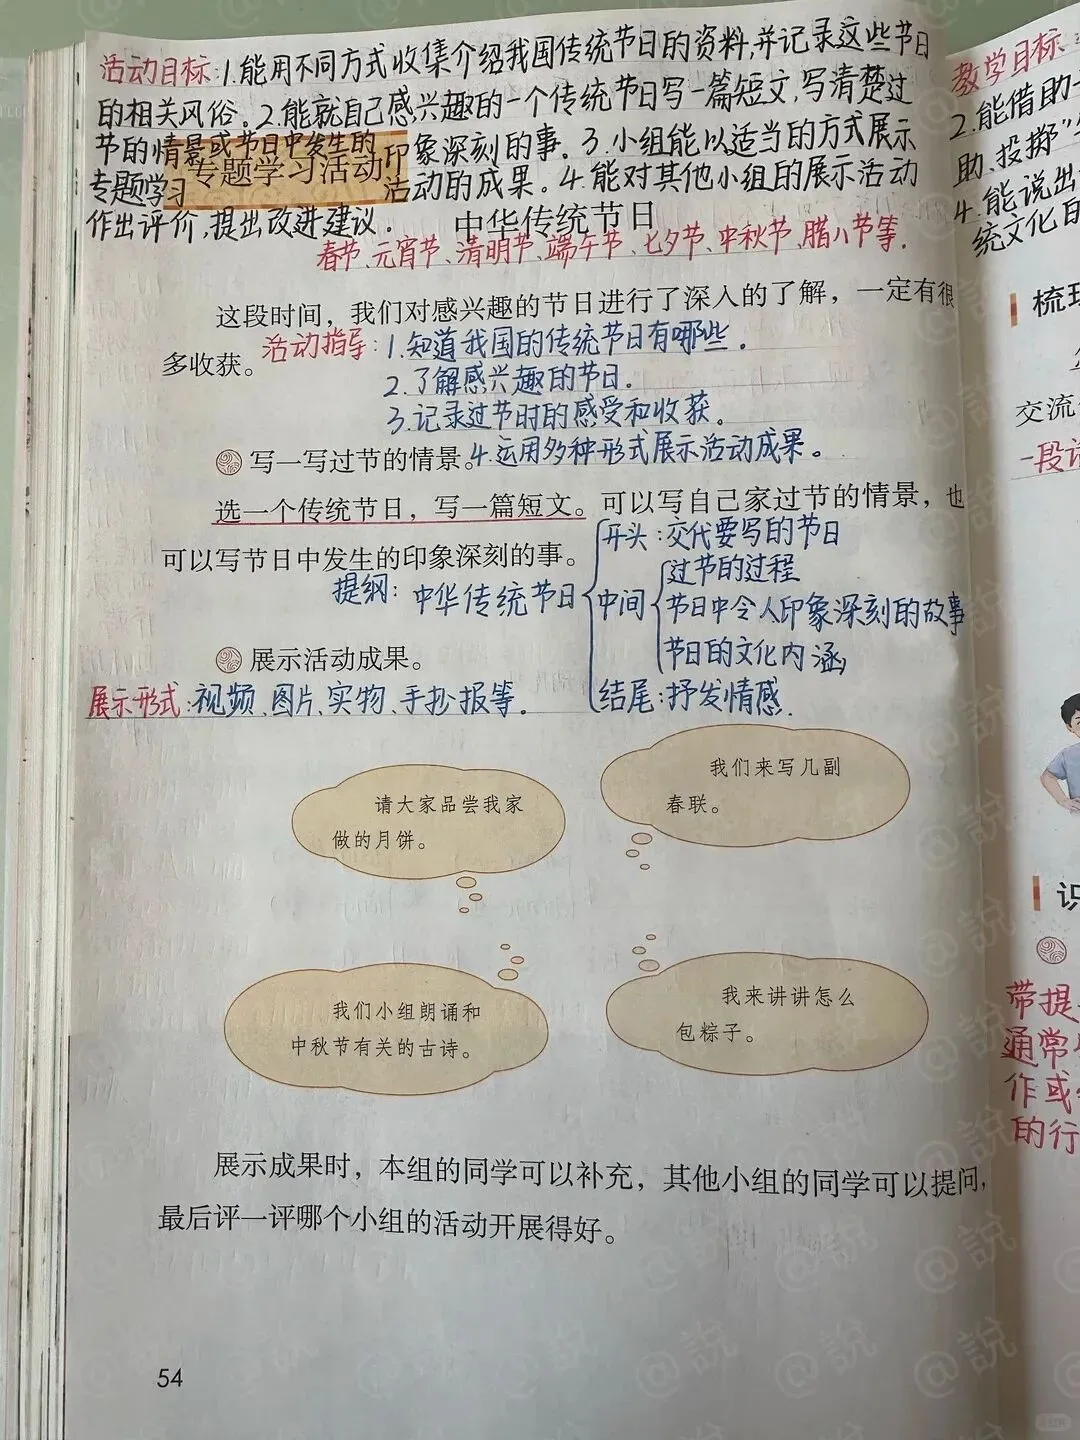 活动目标:1.能用不同方式收集介绍我国传统节日的资料,并记录这些节日
的相关风俗。2.能就自己感兴趣的一个传统节日写一篇短文,写清楚过
节的情景或节日中发生的印象深刻的事。3.小组能以适当的方式展示
专题学习活动的成果。4.能对其他小组的展示活动
作出评价,提出改进建议.
专题学习活动
中华传统节日
春节、元宵节、清明节、端午节、七夕节、中秋节、腊八节等.
这段时间，我们对感兴趣的节日进行了深入的了解，一定有很
多收获。
活动指导:1.知道我国的传统节日有哪些.
2.了解感兴趣的节日.
3.记录过节时的感受和收获。
4.运用多种形式展示活动成果。
写一写过节的情景。
选一个传统节日，写一篇短文。可以写自己家过节的情景，也
可以写节日中发生的印象深刻的事。
提纲:中华传统节日
开头:交代要写的节日
中间
过节的过程
节日中令人印象深刻的故事
节日的文化内涵
结尾:抒发情感.
展示活动成果。
展示形式:视频、图片、实物、手抄报等.
请大家品尝我家
做的月饼。
我们来写几副
春联。
我们小组朗诵和
中秋节有关的古诗。
我来讲讲怎么
包粽子。
展示成果时，本组的同学可以补充，其他小组的同学可以提问，
最后评一评哪个小组的活动开展得好。
54
教学目标
2.能借助
助、投掷"
4.能说出
统文化的
梳理
交流
一段话
识
带提
通常
作或
的行
@說